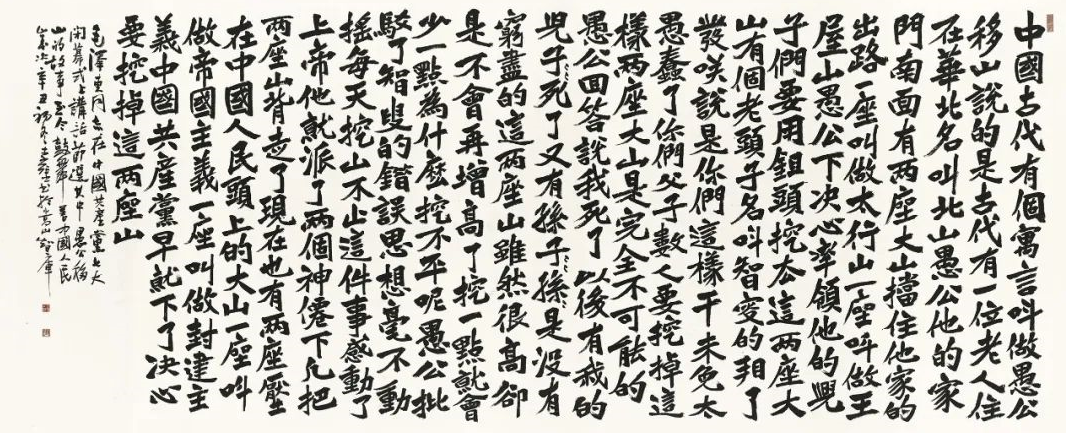 中國古代有個寓言叫做愚公
移山說的是古代有一位老人住
在華北名叫北山愚公他的家
門南面有两座大山擋住他家的
出路一座叫做太行山一座叫做王
屋山愚公下决心率領他的兒
子們要用鉏頭挖去這两座大
山有個老頭子名叫智叟的看了
發笑說是你們這樣干未免太
愚蠢了你們父子數人要挖掉這
樣两座大山是完全不可能的
愚公回答說我死了以後有我的
兒子〻死了又有孫子〻孫〻是没有
窮盡的這两座山雖然很高卻
是不會再增高了挖一點就會
少一點為什麽挖不平呢愚公批
駁了智叟的錯誤思想毫不動
摇每天挖山不止這件事感動了
上帝他就派了两個神僊下凡把
两座山背走了現在也有两座壓
在中國人民頭上的大山一座叫
做帝國主義一座叫做封建主
義中國共産黨早就下了决心
要挖掉這两座山
毛澤東同志在中國共産黨七大
閉幕式上講話節選其中愚公移
山的故事至今鼓舞着中國人民
歲次辛丑初冬王書於山